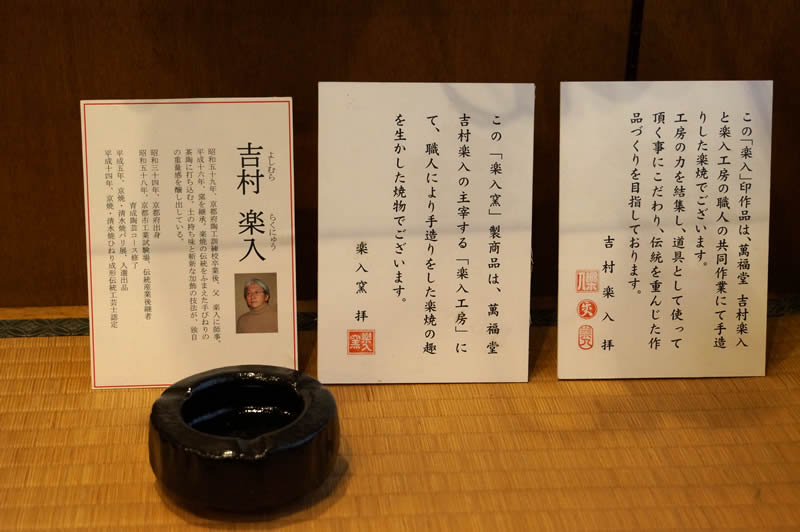 よしむら らくにゅう
吉村 楽入
昭和五十九年、京都府陶工訓練校卒業後、父 楽入に師事。
平成十六年、窯を継承。楽焼の伝統をふまえた手びねりの
茶陶に打ち込む。土の持ち味と斬新な加飾の技法が、独自
の重量感を醸し出している。
昭和三十四年、京都府出身
昭和五十八年、京都市工業試験場、伝統産業後継者
育成陶芸コース修了
平成五年、京焼・清水焼パリ展、入選出品
平成十四年、京焼・清水焼ひねり成形伝統工芸士認定
この「楽入窯」製商品は、萬福堂
吉村楽入の主宰する「楽入工房」に
て、職人により手造りをした楽焼の趣
を生かした焼物でございます。
楽入窯 拝
この「楽入」印作品は、萬福堂 吉村楽入
と楽入工房の職人の共同作業にて手造
りした楽焼でございます。
工房の力を結集し、道具として使って
頂く事にこだわり、伝統を重んじた作
品づくりを目指しております。
吉村楽入 拝